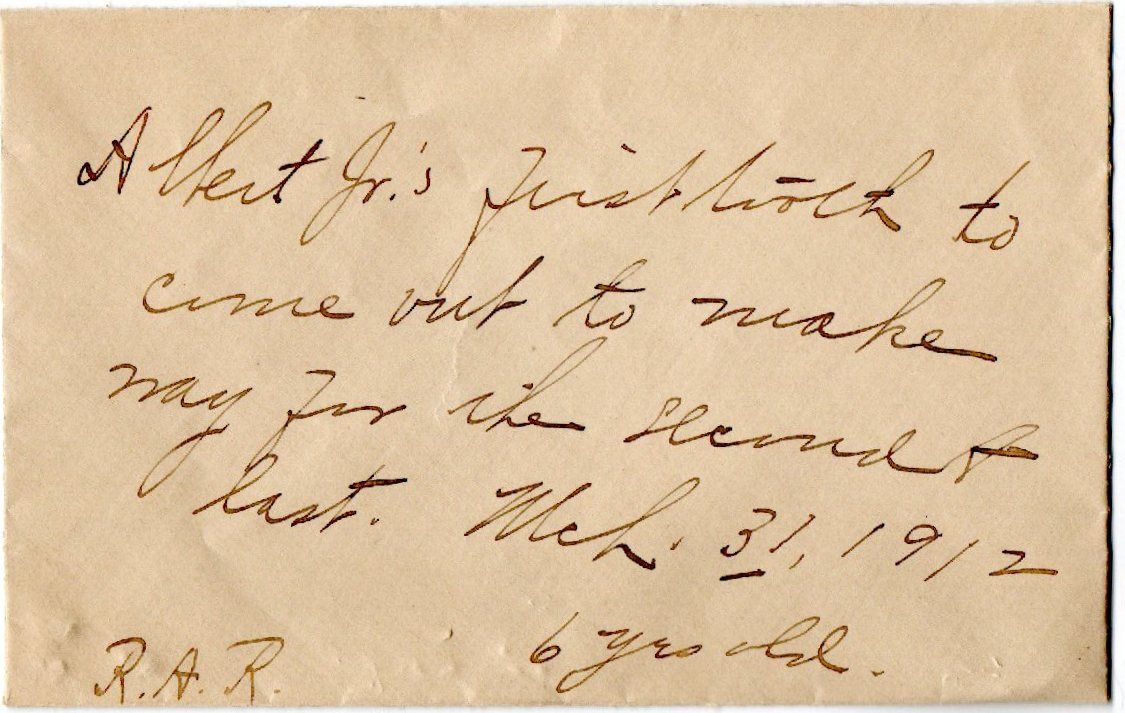 Albert Jr.'s first tooth to
come out to make
way for the second &
last. Mch. 31, 1912
6 yrs old.
R. A. R.